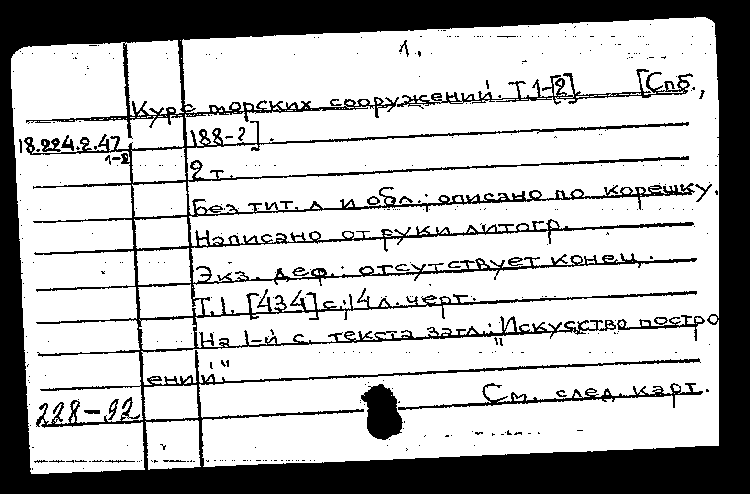 1.
Курс морских сооружений. Т.1-[2]. [Спб.,
18.224.2.47 188-?].
1-2
2 т.
Без тит. л и обл.; описано по корешку.
Написано от руки литогр.
Экз. деф.: отсутствует конец.
Т.1. [434] с.; 14 л. черт.
На 1-й с. текста загл.: "Искусство постро
ений"
228-92 См. след. карт.